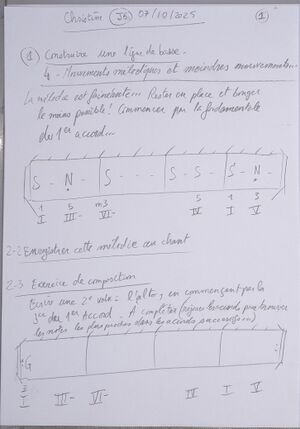 Christine JS 07/10/2025 ①
① Construire une ligne de basse.
4 - Mouvements mélodiques et moindres mouvements...
La mélodie est fainéante... Rester en place et bouger
le moins possible! Commencer par la fondamentale
du 1er accord...
S - N - S - - - S - S - S - N -
1 5 m3 5 1 3
I III- VI- IV I V
2-2 Enregistrer cette mélodie au chant
2-3 Exercice de composition
Ecrire une 2e voix = l'alto, en commençant par la
3ce du 1er Accord - A compléter (rejouer les accords pour trouver
les notes les plus proches dans les accords successifs)
G
3
I III- VI- IV I V